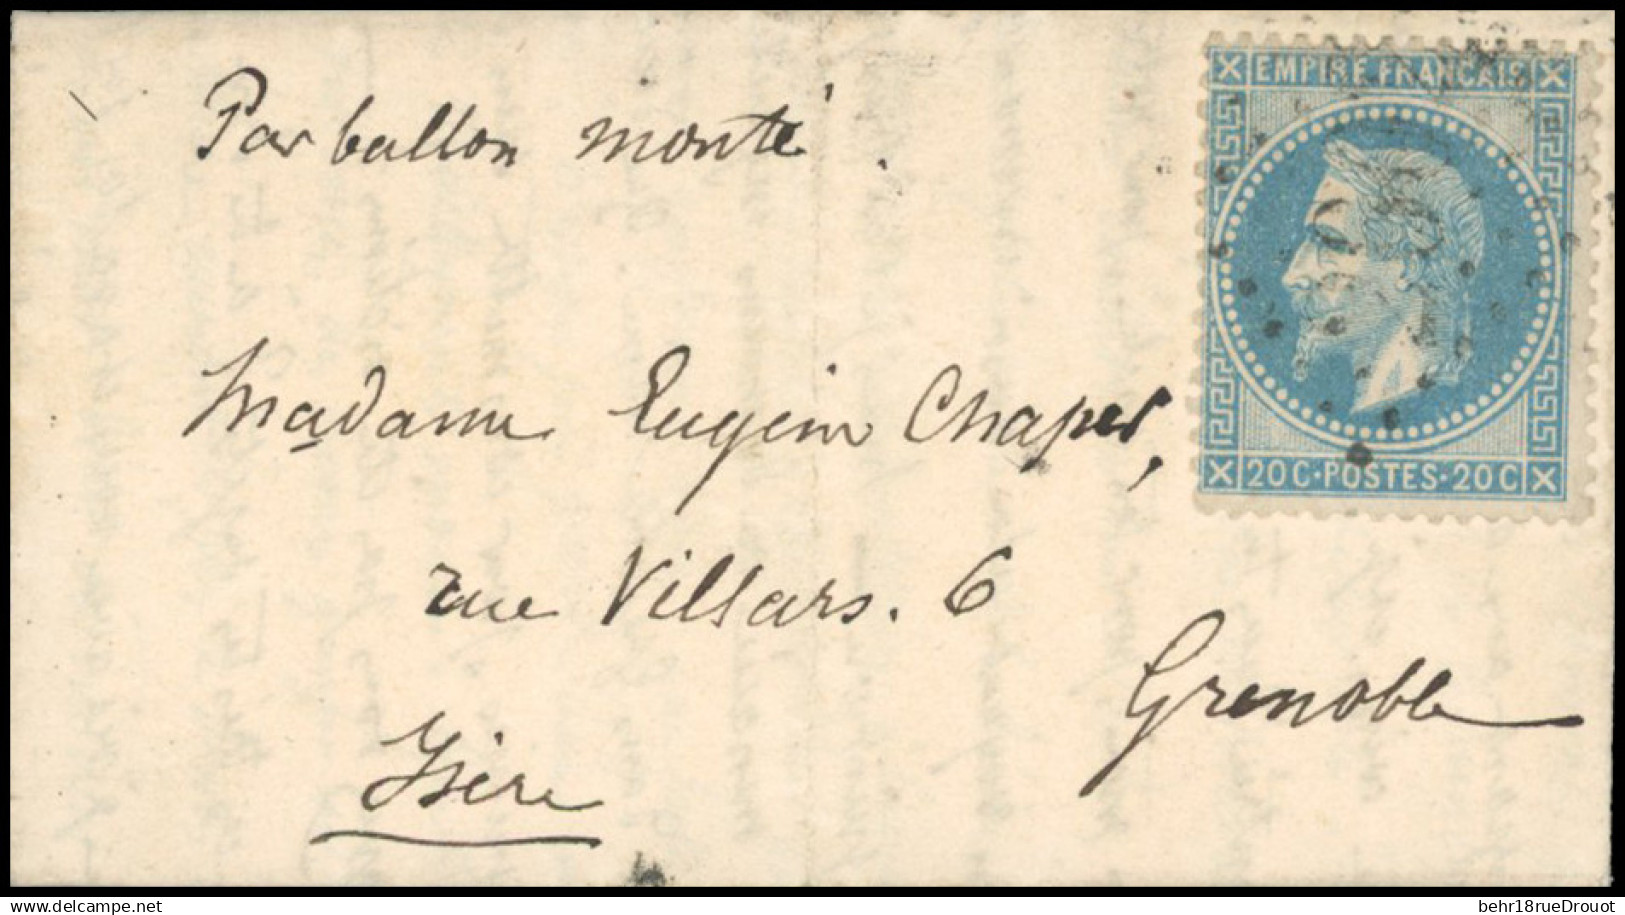 Par ballon monté.
EMPIRE FRANÇAIS
20 C · POSTES · 20 C
Madame Eugénie Chaper,
rue Villars. 6
Grenoble
Isère
delcampe.net
behr18rueDrouot